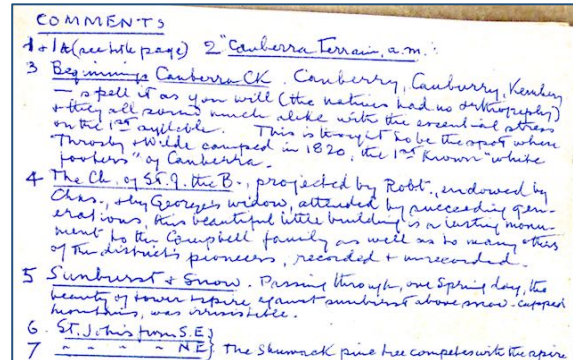 COMMENTS
1 + 1A (see title page) 2 "Canberra Terrain, a.m."
3 Beginnings Canberra Ck. Canberry, Canburry, Kembery
— spell it as you will (the natives had no orthography)
& they all sound much alike with the essential stress
on the 1st syllable. This is thought to be the spot where
Throsby & Wilde camped in 1820, the 1st known "white
foohers" of Canberra.
4 The Ch. of St. J. the B., projected by Robt., endowed by
Chas., & by George's widow, attended by succeeding gen-
erations, this beautiful little building is a lasting monu-
ment to the Campbell family as well as to many others
of the district's pioneers, recorded & unrecorded.
5 Sunburst & Snow. Passing through, one Spring day, the
beauty of tower & spire, against sunburst above snow-capped
mountains, was irresistible.
6. St. John's from S.E.}
7 " " " " NE} The Shumack pine tree competes with the spire